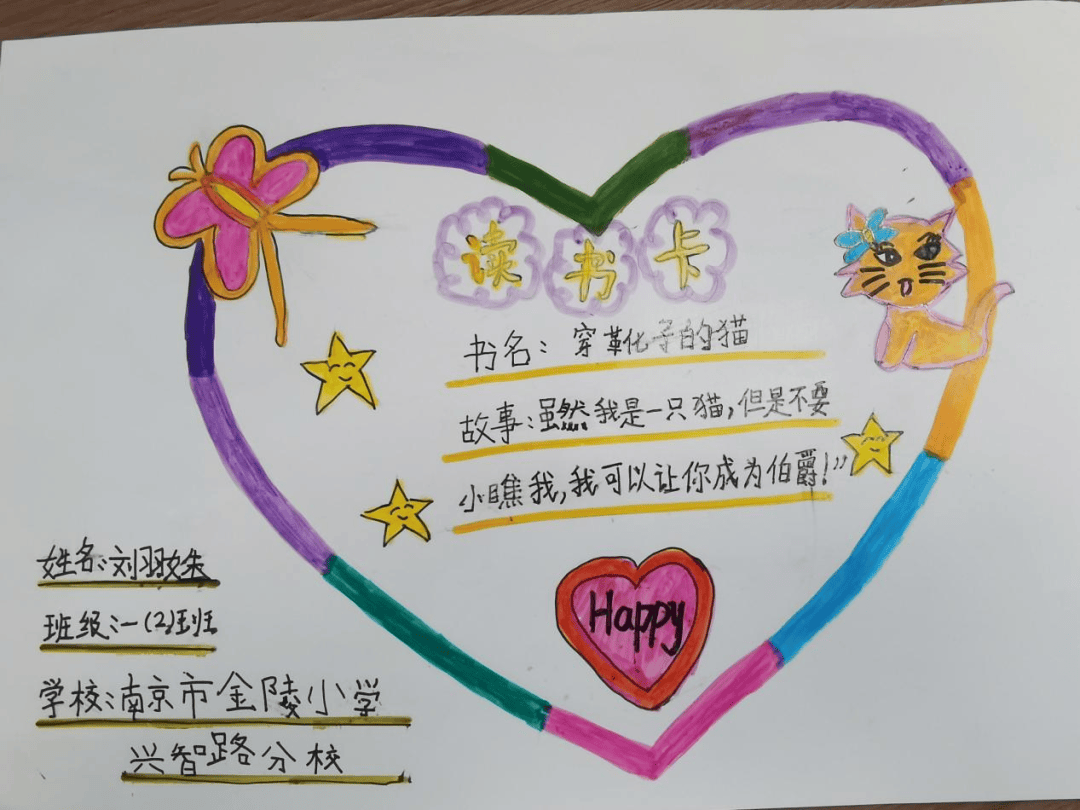 读书卡
书名：穿靴子的猫
故事：虽然我是一只猫，但是不要
小瞧我，我可以让你成为伯爵！”
Happy
姓名：刘羽姝
班级：一（2）班
学校：南京市金陵小学
兴智路分校